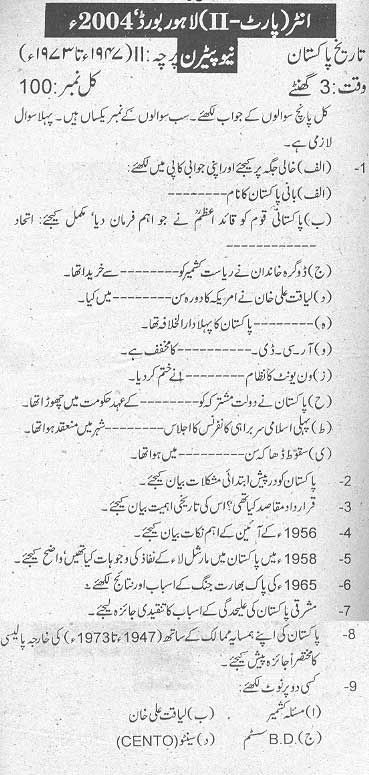 انٹر (پارٹ-II) لاہور بورڈ 2004ء
تاریخ پاکستان نیو پیٹرن پرچہ:II (۱۹۴۷ء تا ۱۹۷۳ء)
وقت: 3 گھنٹے کل نمبر: 100
کل پانچ سوالوں کے جواب لکھئے۔ سب سوالوں کے نمبر یکساں ہیں۔ پہلا سوال
لازمی ہے۔
1- (الف) خالی جگہ پُر کیجئے اور اپنی جوابی کاپی میں لکھئے:
(الف) بانی پاکستان کا نام--------۔
(ب) پاکستانی قوم کو قائد اعظمؒ نے جو اہم فرمان دیا' مکمل کیجئے: اتحاد
------------۔
(ج) ڈوگرہ خاندان نے ریاست کشمیر کو--------سے خریدا تھا۔
(د) لیاقت علی خان نے امریکہ کا دورہ سن--------میں کیا۔
(ہ) --------پاکستان کا پہلا دارالخلافہ تھا۔
(و) آر۔سی۔ڈی۔--------کا مخفف ہے۔
(ز) ون یونٹ کا نظام--------نے ختم کر دیا۔
(ح) پاکستان نے دولت مشترکہ کو--------کے عہد حکومت میں چھوڑا تھا۔
(ط) پہلی اسلامی سربراہی کانفرنس کا اجلاس--------شہر میں منعقد ہوا تھا۔
(ی) سقوط ڈھاکہ سن--------میں ہوا تھا۔
2- پاکستان کو درپیش ابتدائی مشکلات بیان کیجئے۔
3- قرارداد مقاصد کیا تھی؟ اس کی تاریخی اہمیت بیان کیجئے۔
4- 1956ء کے آئین کے اہم نکات بیان کیجئے۔
5- 1958ء میں پاکستان میں مارشل لاء کے نفاذ کی وجوہات کیا تھیں' واضح کیجئے۔
6- 1965ء کی پاک بھارت جنگ کے اسباب اور نتائج لکھئے۔
7- مشرقی پاکستان کی علیحدگی کے اسباب کا تنقیدی جائزہ لیجئے۔
8- پاکستان کی اپنے ہمسایہ ممالک کے ساتھ (1947ء تا 1973ء) کی خارجہ پالیسی
کا مختصراً جائزہ پیش کیجئے۔
9- کسی دو پر نوٹ لکھئے:
(ا) مسئلہ کشمیر (ب) لیاقت علی خان
(ج) B.D. سسٹم (د) سینٹو (CENTO)